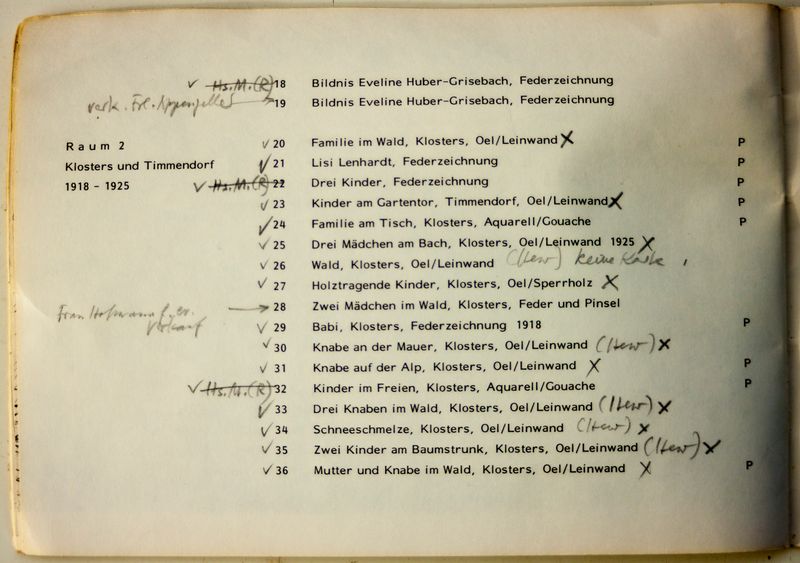 ✓ Hs. M. (R) 18 Bildnis Eveline Huber-Grisebach, Federzeichnung
verk. Frl. 19 Bildnis Eveline Huber-Grisebach, Federzeichnung
Raum 2 ✓ 20 Familie im Wald, Klosters, Oel/Leinwand X P
Klosters und Timmendorf ✓ 21 Lisi Lenhardt, Federzeichnung P
1918 - 1925 ✓ Hs. M. (R) 22 Drei Kinder, Federzeichnung P
✓ 23 Kinder am Gartentor, Timmendorf, Oel/Leinwand X P
✓ 24 Familie am Tisch, Klosters, Aquarell/Gouache P
✓ 25 Drei Mädchen am Bach, Klosters, Oel/Leinwand 1925 X
✓ 26 Wald, Klosters, Oel/Leinwand (Hew) keine Karte
✓ 27 Holztragende Kinder, Klosters, Oel/Sperrholz X
Frau Hofmann → 28 Zwei Mädchen im Wald, Klosters, Feder und Pinsel
Verkauf ✓ 29 Babi, Klosters, Federzeichnung 1918 P
✓ 30 Knabe an der Mauer, Klosters, Oel/Leinwand (Hew) X P
✓ 31 Knabe auf der Alp, Klosters, Oel/Leinwand X P
✓ Hs. M. (R) 32 Kinder im Freien, Klosters, Aquarell/Gouache P
✓ 33 Drei Knaben im Wald, Klosters, Oel/Leinwand (Hew) X
✓ 34 Schneeschmelze, Klosters, Oel/Leinwand (Hew) X
✓ 35 Zwei Kinder am Baumstrunk, Klosters, Oel/Leinwand (Hew) X
✓ 36 Mutter und Knabe im Wald, Klosters, Oel/Leinwand X P